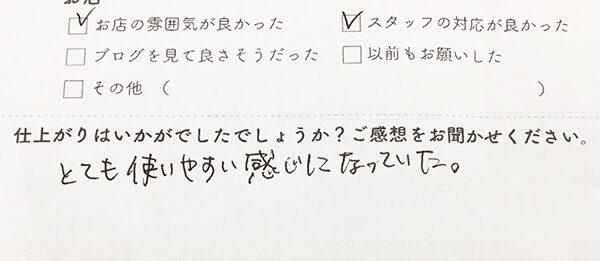 ☑ お店の雰囲気が良かった ☑ スタッフの対応が良かった
☐ ブログを見て良さそうだった ☐ 以前もお願いした
☐ その他 ( )
仕上がりはいかがでしたでしょうか？ご感想をお聞かせください。
とても使いやすい感じになっていた。